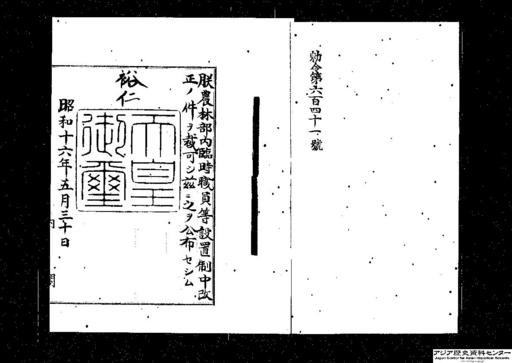 勅令第六百四十一號
朕農林部內臨時職員等設置制中改
正ノ件ヲ裁可シ茲ニ之ヲ公布セシム
裕仁
天皇御璽
昭和十六年五月三十日
アジア歴史資料センター
Japan Center for Asian Historical Records